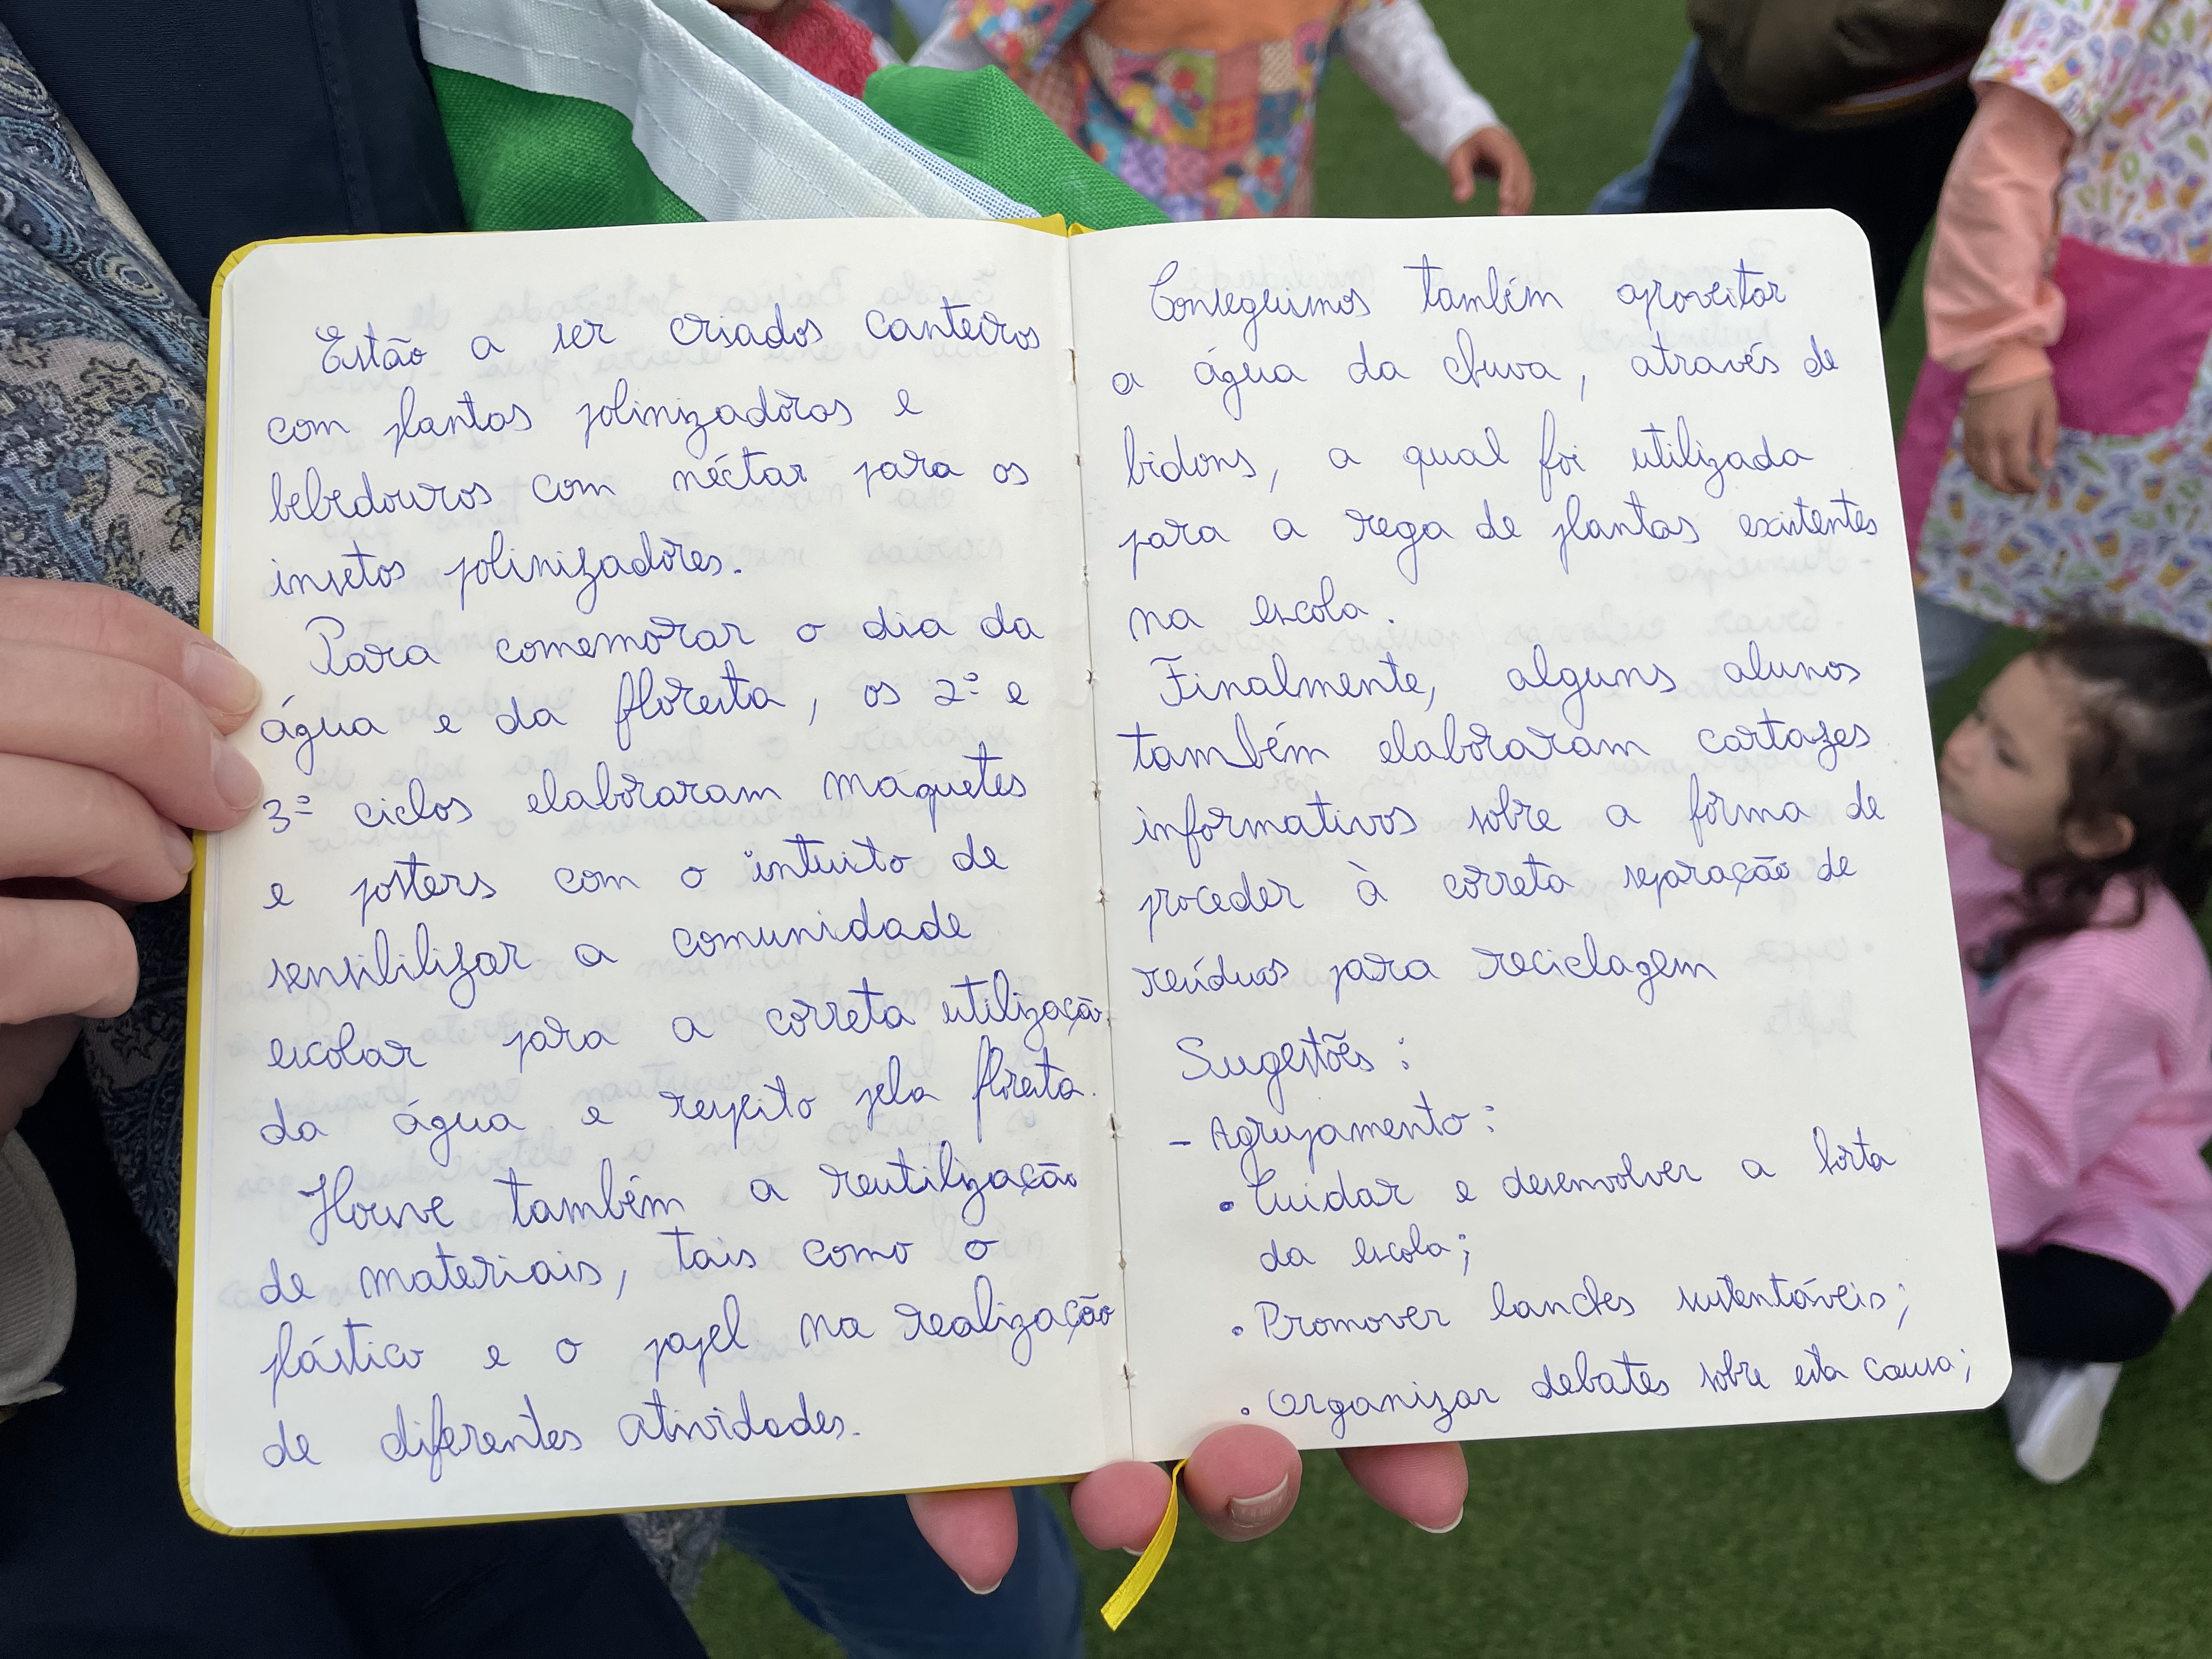 Estão a ser criados canteiros
com plantas polinizadoras e
bebedouros com néctar para os
insetos polinizadores.
Para comemorar o dia da
água e da floresta, os 2º e
3º ciclos elaboraram maquetes
e posters com o intuito de
sensibilizar a comunidade
escolar para a correta utilização
da água e respeito pela floresta.
Houve também a reutilização
de materiais, tais como o
plástico e o papel na realização
de diferentes atividades.
Conseguimos também aproveitar
a água da chuva, através de
bidons, a qual foi utilizada
para a rega de plantas existentes
na escola.
Finalmente, alguns alunos
também elaboraram cartazes
informativos sobre a forma de
proceder à correta separação de
resíduos para reciclagem
Sugestões:
- Agrupamento:
• Cuidar e desenvolver a horta
da escola;
• Promover lanches sustentáveis;
• Organizar debates sobre esta causa;